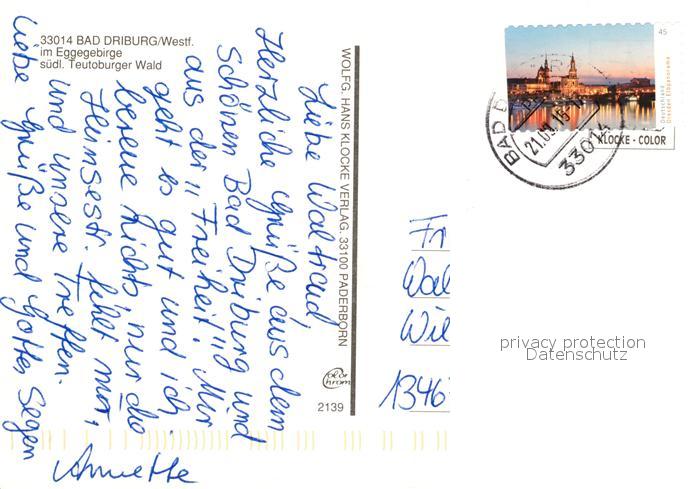 33014 BAD DRIBURG/Westf.
im Eggegebirge
südl. Teutoburger Wald
Liebe Waltraud
Herzliche Grüße aus dem
schönen Bad Driburg und
aus der "Freiheit"! Mir
geht es gut und ich
bereue nichts, nur die
Heinsestr. fehlt mir,
und unsere Treffen.
Liebe Grüße und Gottes Segen
Annette
WOLFG. HANS KLOCKE VERLAG, 33100 PADERBORN
Color
Chrom
2139
45
Deutschland
Dresden Elbpanorama
BAD
21.09.16
33014
KLOCKE - COLOR
Fr
Wal
Wil
1346
privacy protection
Datenschutz